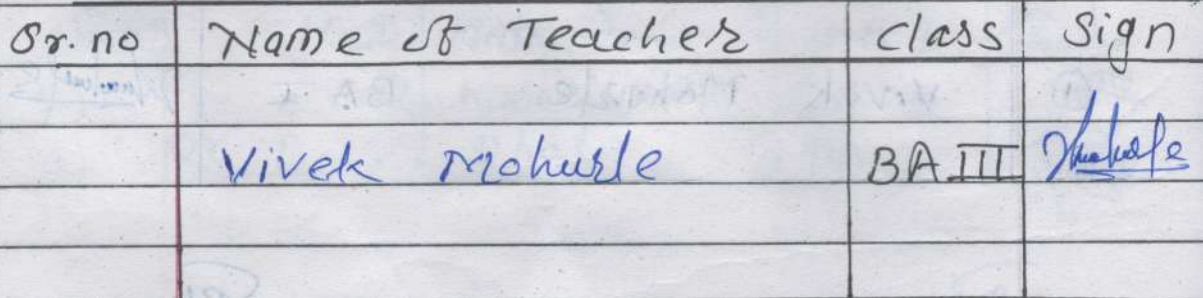 Sr. no Name of Teacher class Sign
Vivek Mohurle BA III